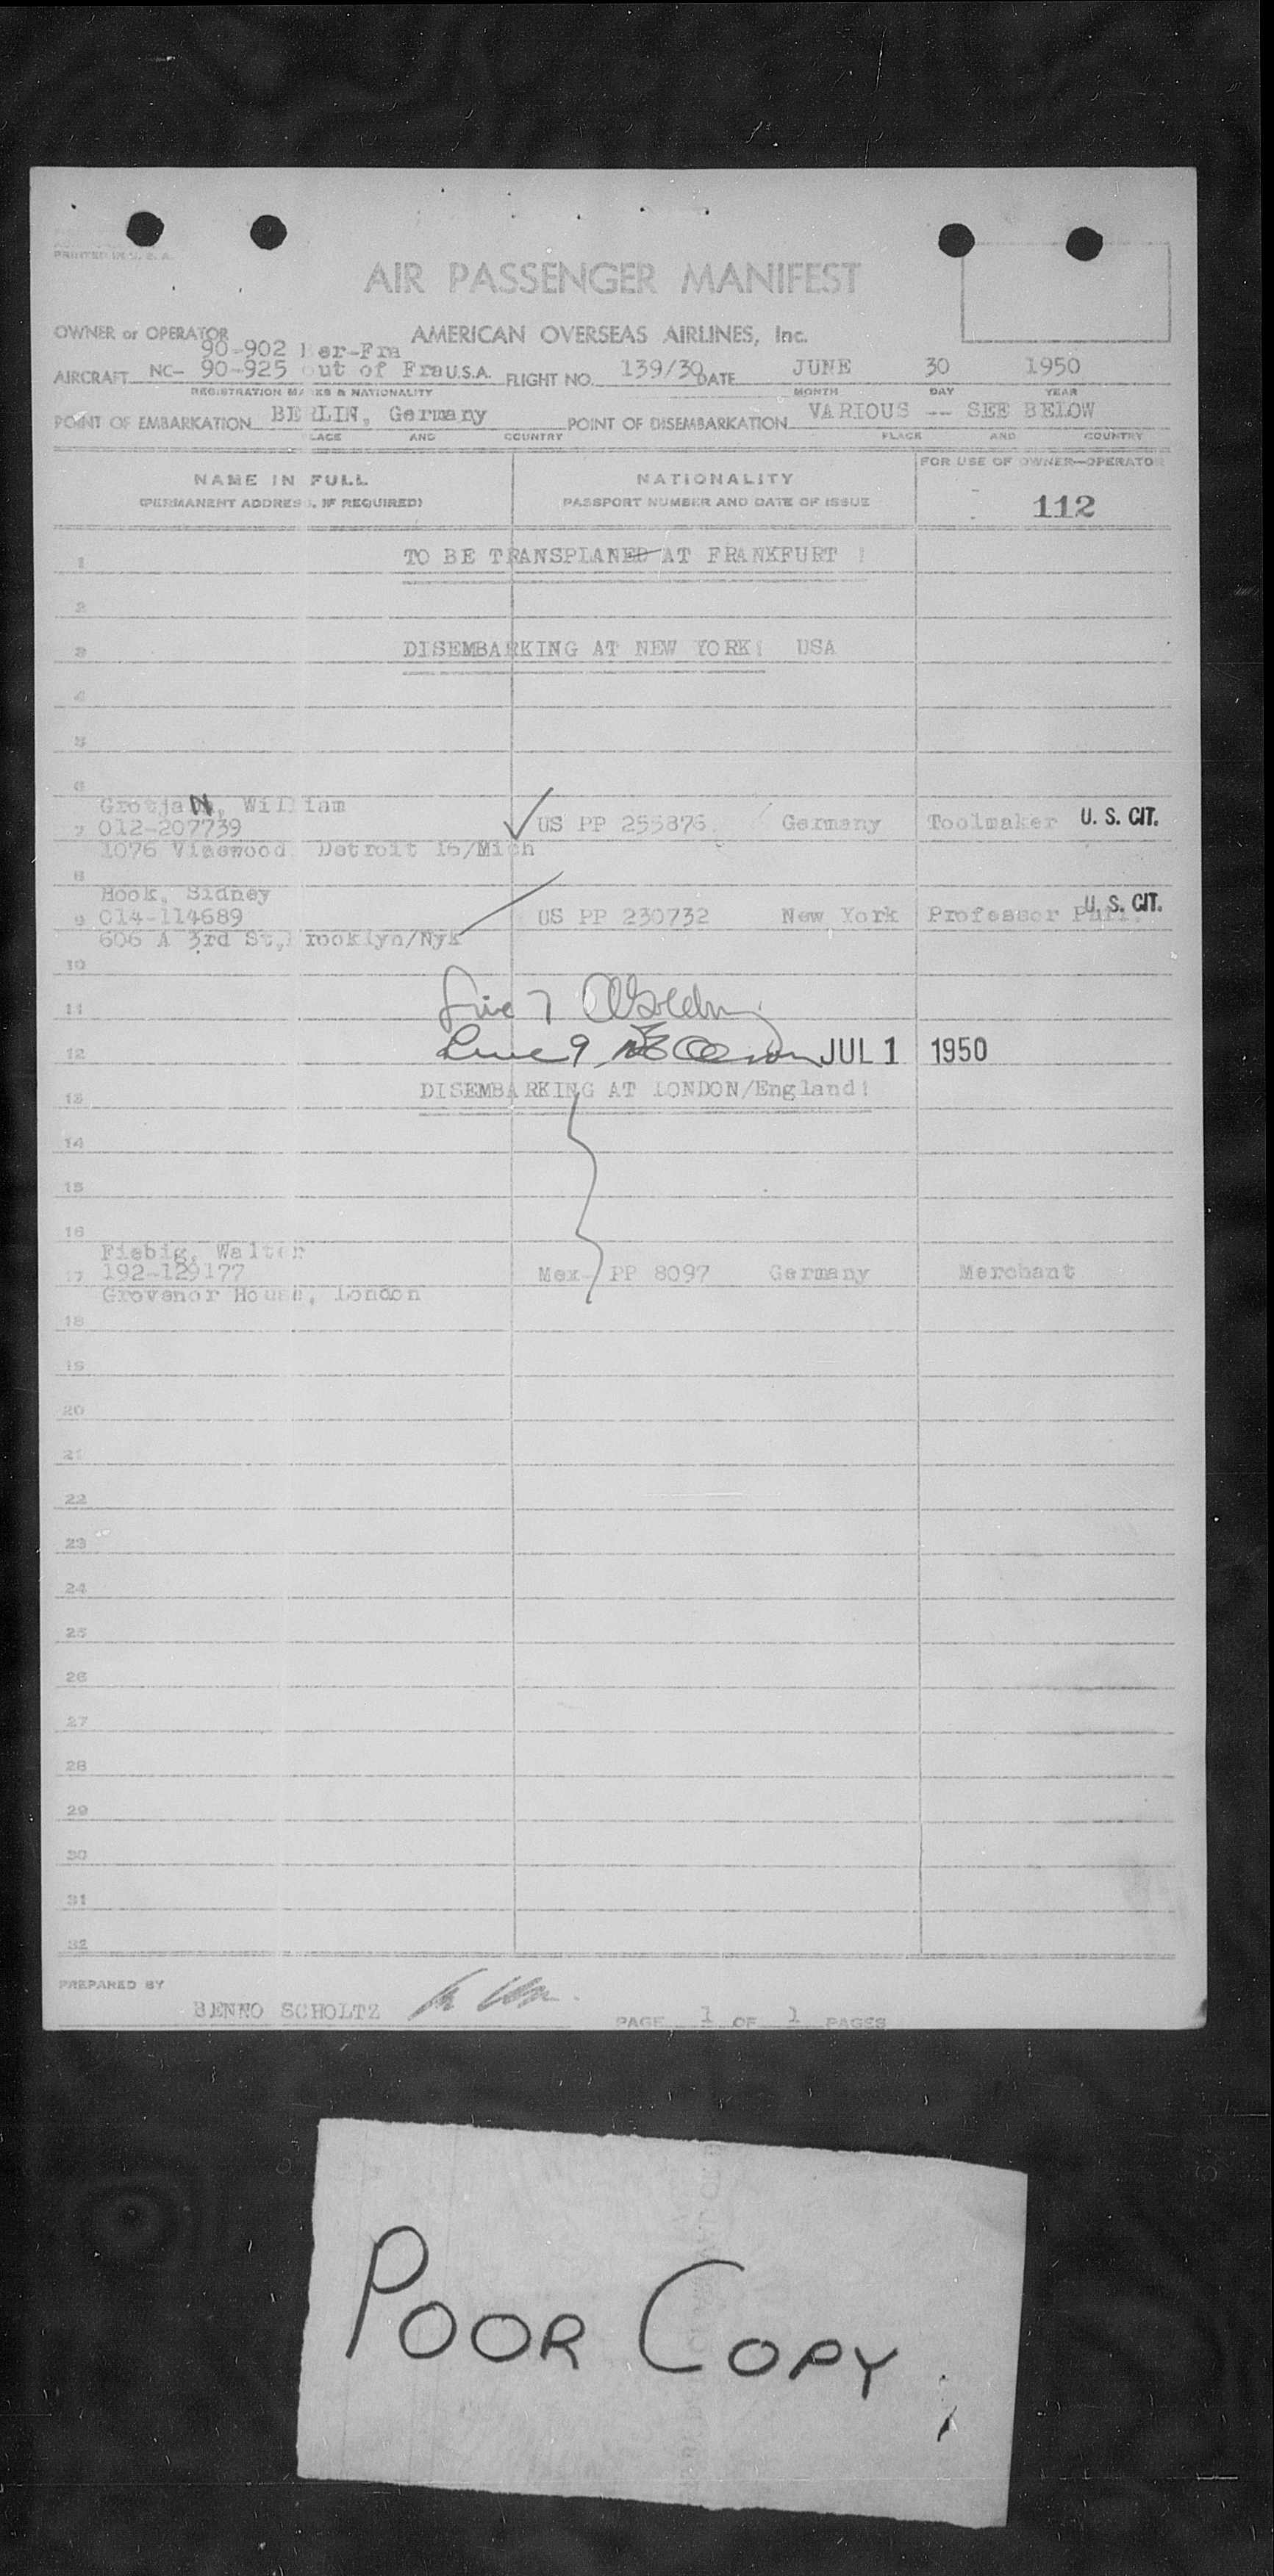 PRINTED IN U. S. A.
AIR PASSENGER MANIFEST
OWNER or OPERATOR AMERICAN OVERSEAS AIRLINES, Inc.
90-902 Ber-Fra
AIRCRAFT NC- 90-925 out of Fra U.S.A. FLIGHT NO. 139/30 DATE JUNE 30 1950
REGISTRATION MARKS & NATIONALITY MONTH DAY YEAR
POINT OF EMBARKATION BERLIN, Germany POINT OF DISEMBARKATION VARIOUS -- SEE BELOW
PLACE AND COUNTRY PLACE AND COUNTRY
NAME IN FULL NATIONALITY FOR USE OF OWNER—OPERATOR
(PERMANENT ADDRESS, IF REQUIRED) PASSPORT NUMBER AND DATE OF ISSUE 112
1 TO BE TRANSPLANED AT FRANKFURT !
2
3 DISEMBARKING AT NEW YORK! USA
4
5
6
GrotjaN, William
7 012-207739 US PP 255876 Germany Toolmaker U. S. CIT.
1076 Vinewood Detroit 16/Mich
8
Hook, Sidney
9 014-114689 US PP 230732 New York Professor Phil. U. S. CIT.
606 A 3rd St, Brooklyn/Nyk
10
11 Line 7
12 Line 9 JUL 1 1950
DISEMBARKING AT LONDON/England!
13
14
15
16
Fiebig, Walter
17 192-129177 Mex- PP 8097 Germany Merchant
Grovenor House, London
18
19
20
21
22
23
24
25
26
27
28
29
30
31
32
PREPARED BY
BENNO SCHOLTZ
PAGE 1 OF 1 PAGES
POOR COPY